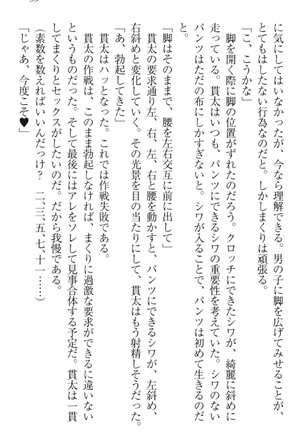 に気にしてはいなかったが、今なら理解できる。男の子に脚を広げてみせることが、
とてもはしたない行為なのだと。しかしまくりは頑張る。
「こ、こうかな」
脚を開く際に脚の位置がずれたのだろう。クロッチにできたシワが、綺麗に斜めに
走っている。貫太はいつも、パンツにできるシワの重要性を考えていた。シワのない
パンツはただの布にしかすぎないと。シワがあることで、パンツは初めて生きるのだ
と。
「脚はそのままで、腰を左右交互に前に出して」
貫太の要求通り左、右、左、右と腰を動かすと、パンツにできるシワが、左斜め、
右斜めと変化していく。その光景を目の当たりにして、貫太はもう射精しそうだった。
「あ、勃起してきた」
貫太はハッとなった。これでは作戦失敗である。
貫太の作戦は、このまま勃起しなければ、まくりに過激な要求ができるに違いない
というものだった。そして最後にはアレをソレして見事合体する予定だ。貫太は一貫
してまくりとセックスがしたいのだ。だから我慢である。
（素数を数えればいいんだっけ？　二、三、五、七、十一……）
「じゃあ、今度こそ♥」